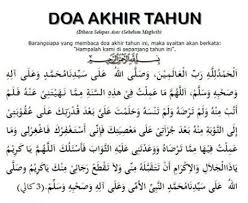 DOA AKHIR TAHUN
(Dibaca Selepas Asar (Sebelum Maghrib)
Barangsiapa yang membaca doa akhir tahun ini, maka syaitan akan berkata:
"Hampalah kami di sepanjang tahun ini".
بِسْمِ اللهِ الرَّحْمٰنِ الرَّحِيْمِ
اَلْحَمْدُلِلّٰهِ رَبِّ الْعَالَمِيْنَ، وَصَلَّى اللهُ عَلَى سَيِّدِنَامُحَمَّدٍ وَعَلَى آلِهِ
وَصَحْبِهِ وَسَلَّمَ. اَللّٰهُمَّ مَا عَمِلْتُ فِي هٰذِهِ السَّنَةِ مِمَّا نَهَيْتَنِي عَنْهُ فَلَمْ
أَتُبْ مِنْهُ وَلَمْ تَرْضَهُ وَلَمْ تَنْسَهُ وَحَلُمْتَ عَلَيَّ بَعْدَ قُدْرَتِكَ عَلَى عُقُوبَتِي وَدَعَوْتَنِي
إِلَى التَّوْبَةِ مِنْهُ بَعْدَ جُرْأَتِي عَلَى مَعْصِيَتِكَ فَإِنِّي أَسْتَغْفِرُكَ فَاغْفِرْلِي وَمَا
عَمِلْتُ فِيهَا مِمَّا تَرْضَاهُ وَوَعَدْتَنِي عَلَيْهِ الثَّوَابَ فَأَسْأَلُكَ اللّٰهُمَّ يَاكَرِيْمُ
يَاذَاالْجَلَالِ وَالْإِكْرَامِ أَنْ تَتَقَبَّلَهُ مِنِّي وَلَا تَقْطَعْ رَجَائِي مِنْكَ يَاكَرِيْمُ وَصَلَّى
اللهُ عَلَى سَيِّدِنَا مُحَمَّدٍ النَّبِيِّ الْأُمِّيِّ وَعَلَى آلِهِ وَصَحْبِهِ وَسَلَّمَ. (3 كالي)